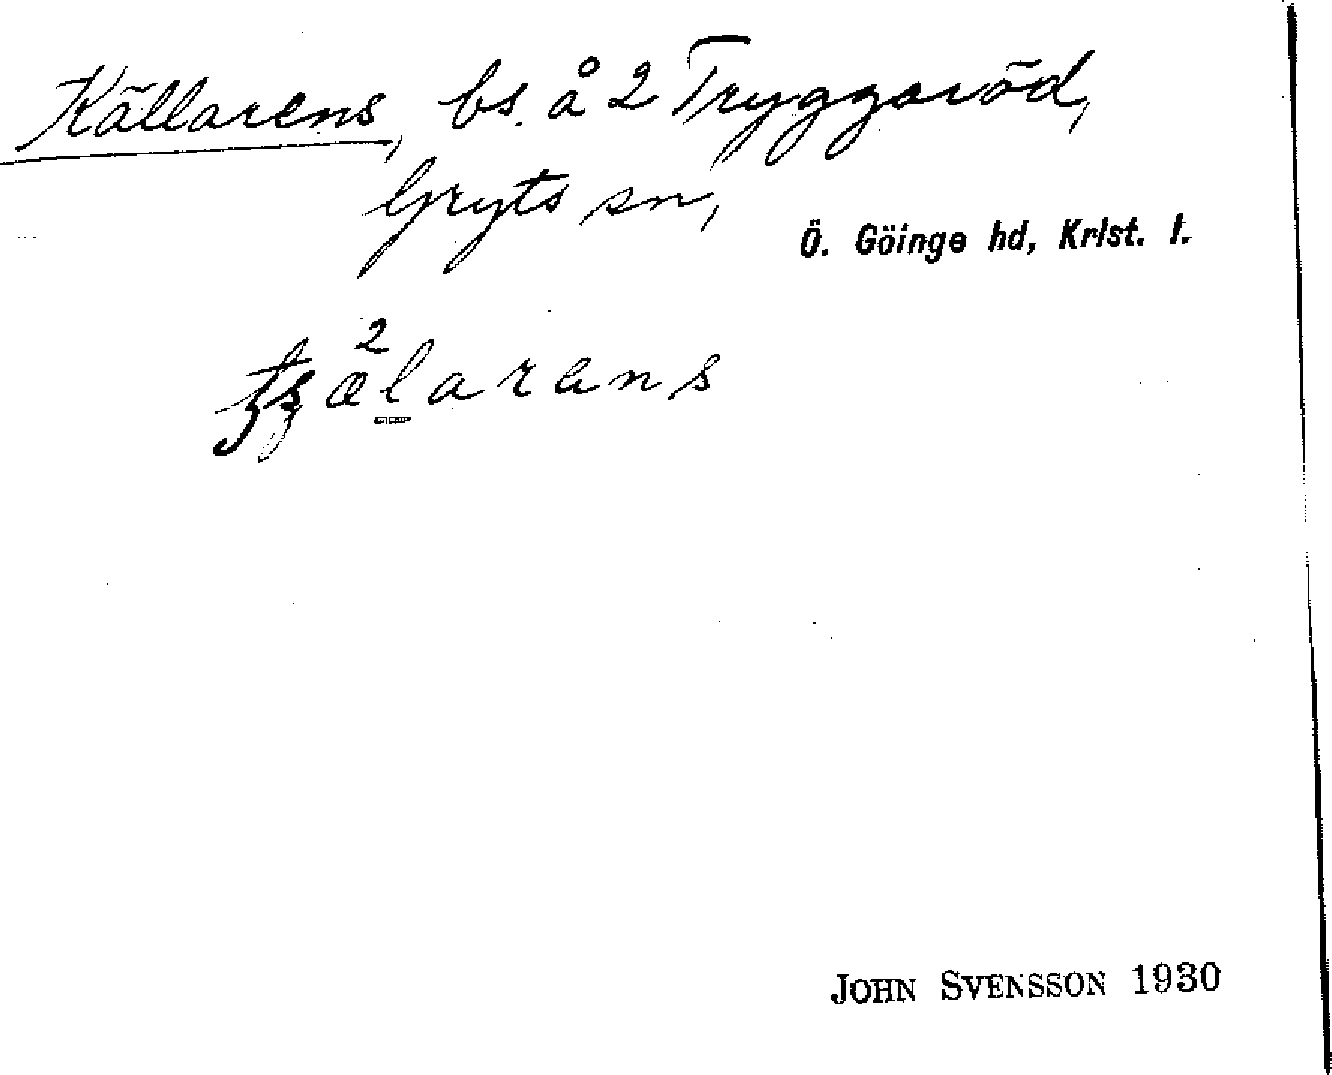 Källarens, bs. å 2 Tryggaröd,
Gryts sn,
Ö. Göinge hd, Krist. l.
John Svensson 1930